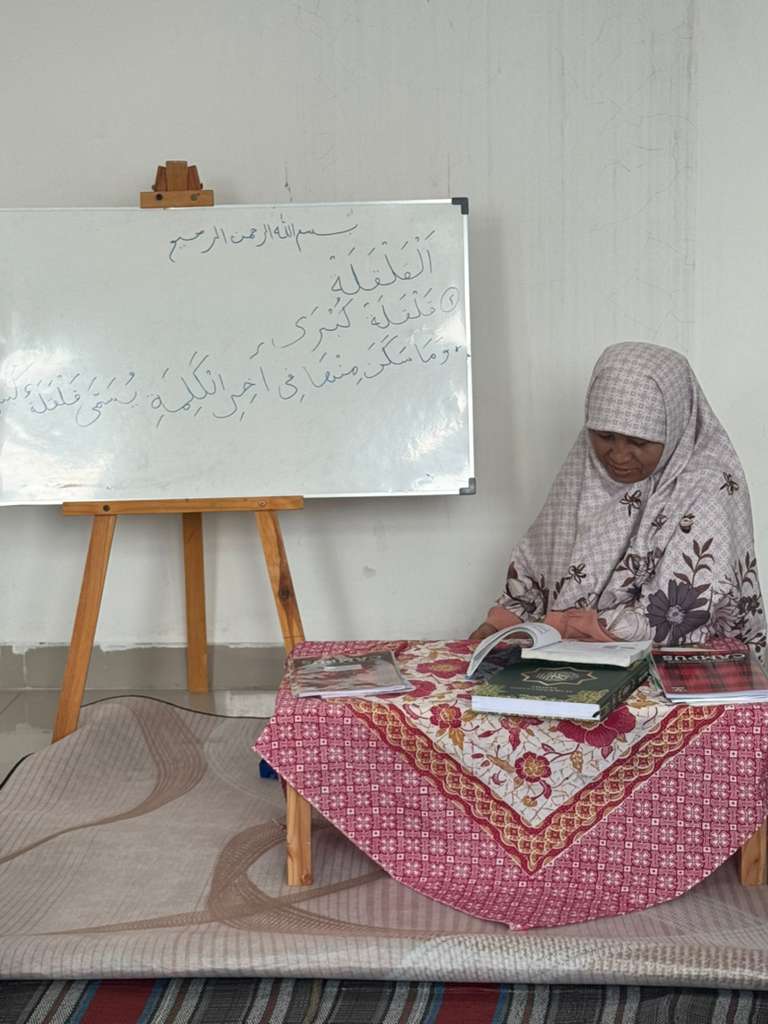 بسم الله الرحمن الرحيم
اَلْقَلْقَلَةُ
قَلْقَلَةْ كُبْرَى
وَمَا سَكَنَ مِنْهَا فِى آخِرِ الْكَلِمَةِ يُسَمَّى قَلْقَلَةً
CAMPUS